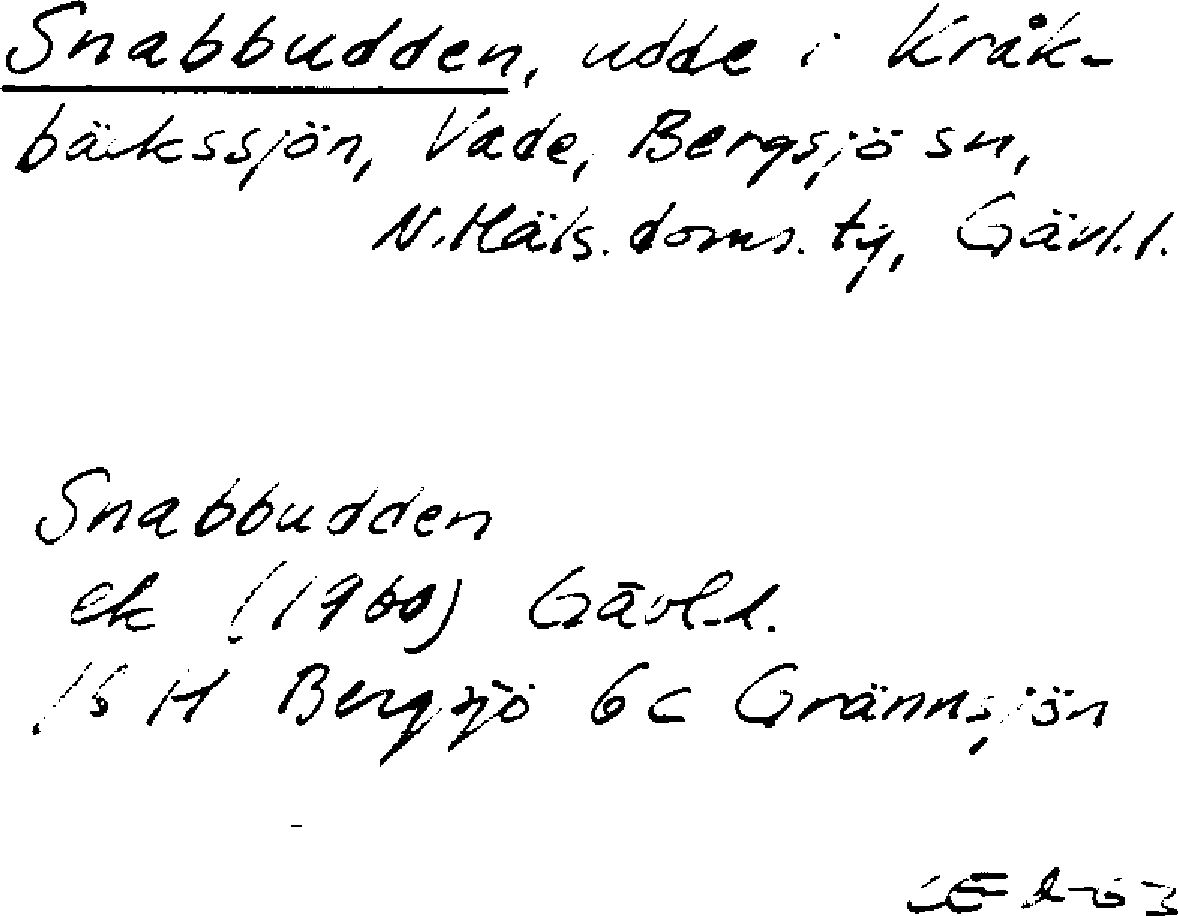 Snabbudden, udde i Kråk-
bäckssjön, Vade, Bergsjö sn,
N. Häls. doms. tg, Gävl. l.
Snabbudden
ek (1960) Gävl. l.
16 H Bergsjö 6c Grännsjön